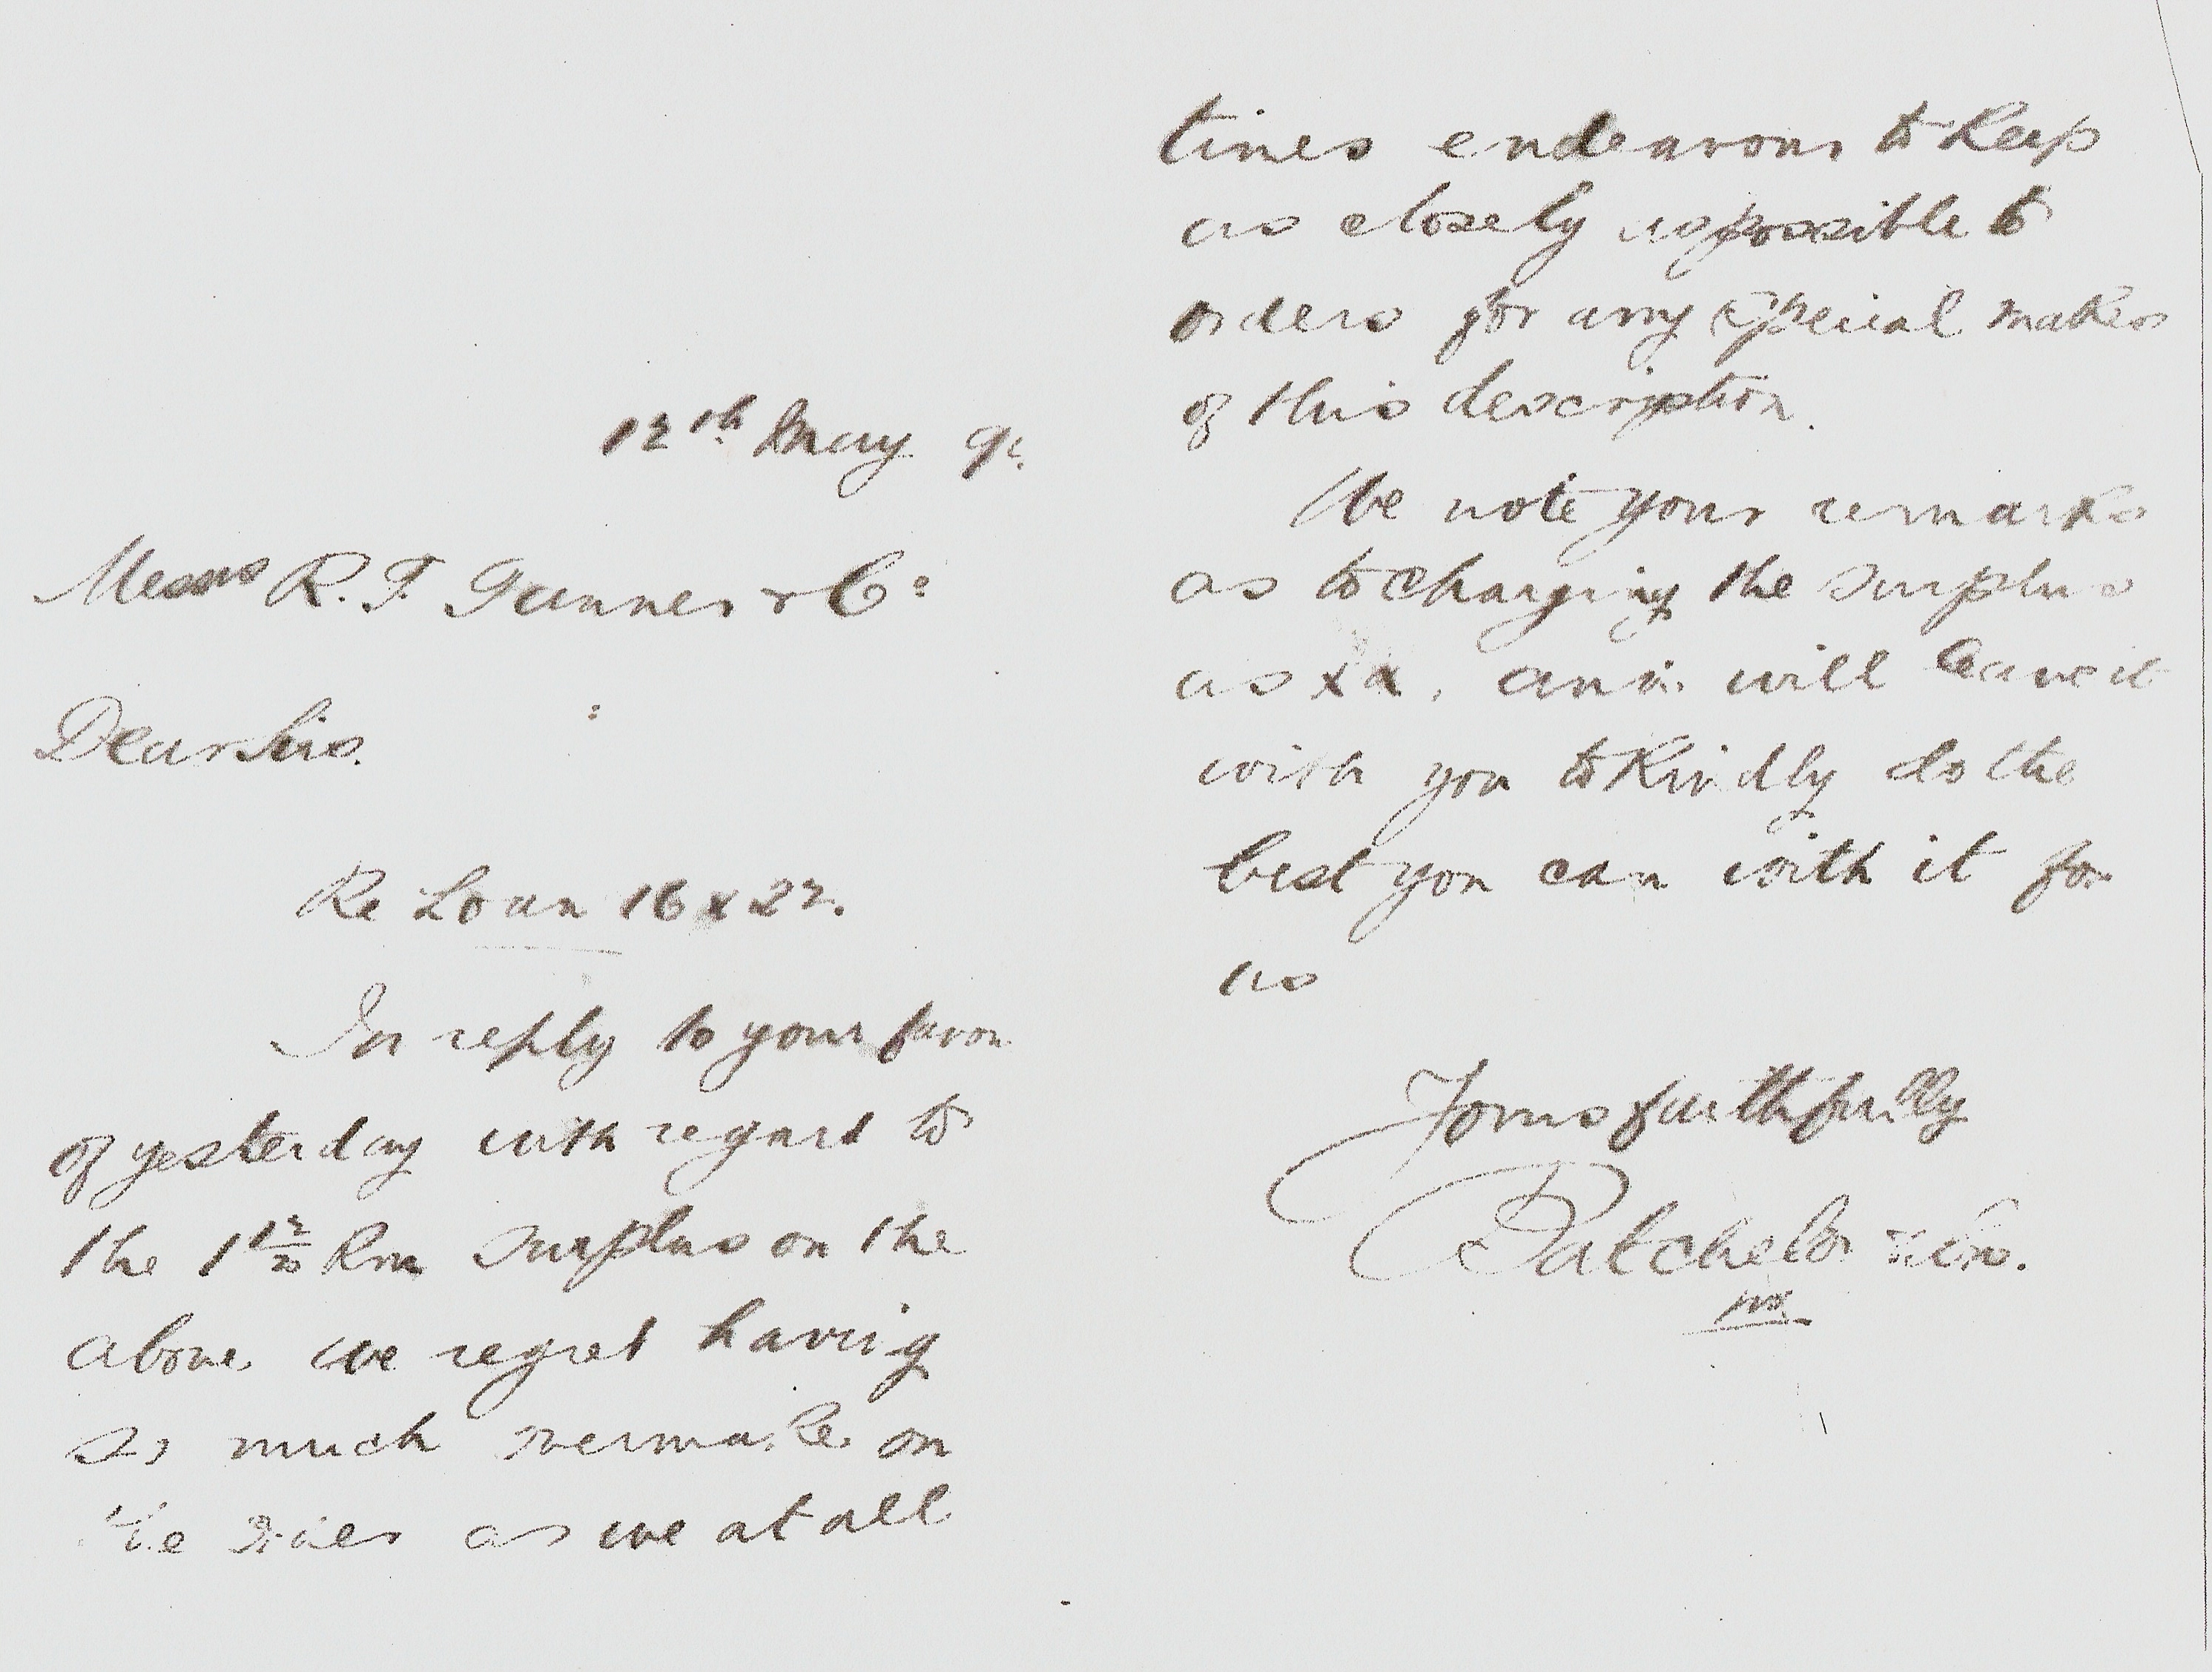 12th May 9
Messrs R. T. Tanner & Co
Dear Sirs.
Re Loan 16 x 22.
In reply to your favor
of yesterday with regard to
the 1 12/20 Rm surplus on the
above. we regret having
so much overmake on
the order as we at all
times endeavour to keep
as closely as possible to
orders for any special makes
of this description.
We note your remarks
as to charging the surplus
as xx, and will leave it
with you to kindly do the
best you can with it for
us
Yours faithfully
Batchelor & Sons.